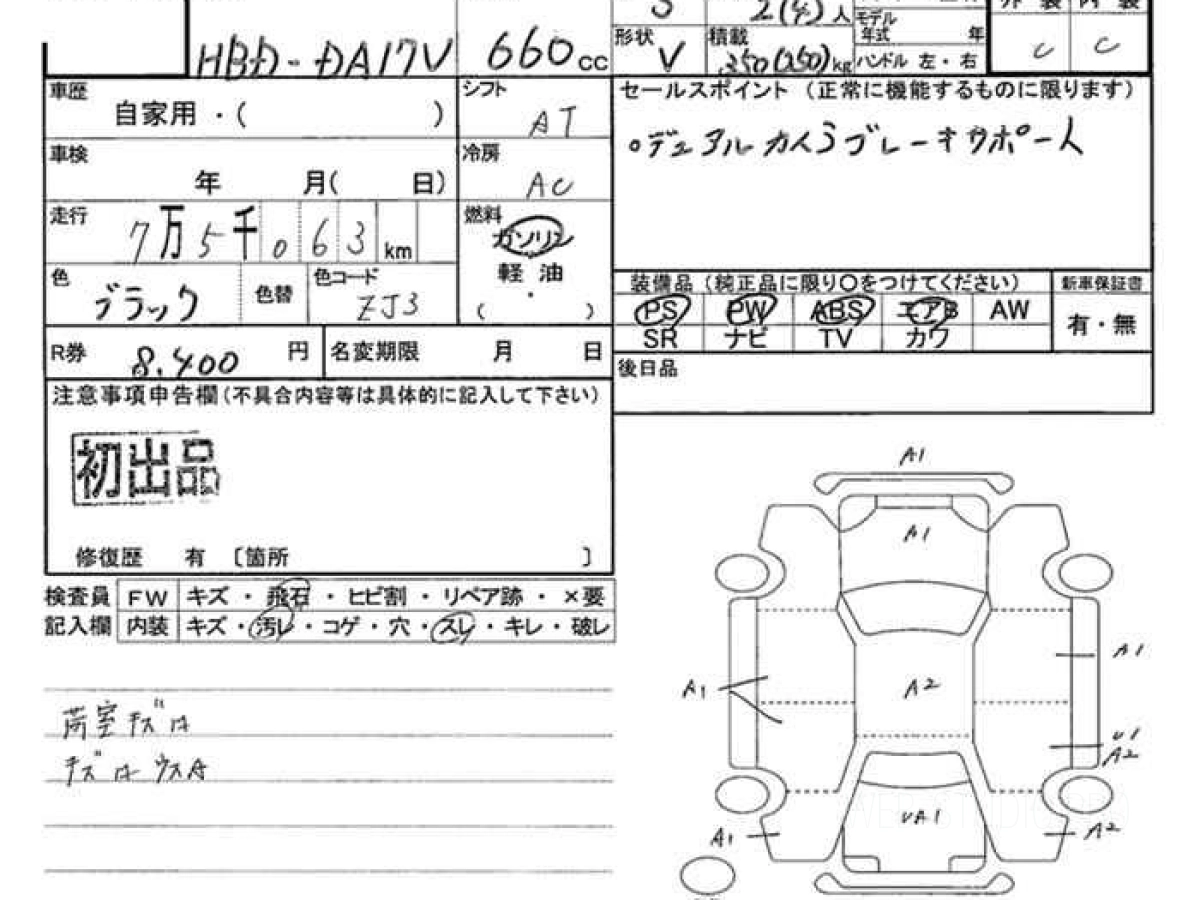 S 2(4)人
モデル
年式 年
HBD-DA17V 660cc
形状 V 積載 350(250)kg ハンドル 左・右 C C
車歴 自家用・( )
シフト AT
セールスポイント(正常に機能するものに限ります)
。デュアルカメラブレーキサポート
車検 年 月( 日)
冷房 AC
走行 7万5千063km
燃料 ガソリン
軽油
・
( )
色 ブラック 色替 色コード ZJ3
装備品(純正品に限り〇をつけてください) 新車保証書
PS PW ABS エアB AW 有・無
SR ナビ TV カワ
R券 8,400円 名変期限 月 日
後日品
注意事項申告欄(不具合内容等は具体的に記入して下さい)
初出品
修復歴 有 〔箇所 〕
検査員 FW キズ・飛石・ヒビ割・リペア跡・×要
記入欄 内装 キズ・汚レ・コゲ・穴・スレ・キレ・破レ
荷室キズ
キズ
A1
A1
A1
A1
A2
U1
A2
UA1
A1
A2